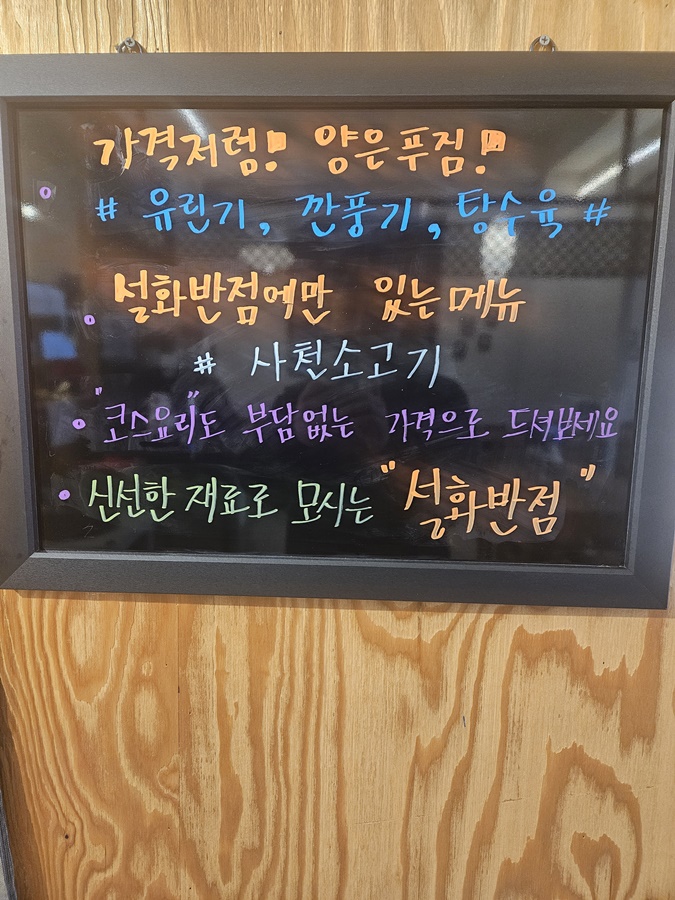 가격저렴! 양은푸짐!
# 유린기, 깐풍기, 탕수육 #
설화반점에만 있는 메뉴
# 사천소고기
"코스요리"도 부담없는 가격으로 드셔보세요
신선한 재료로 모시는 "설화반점"